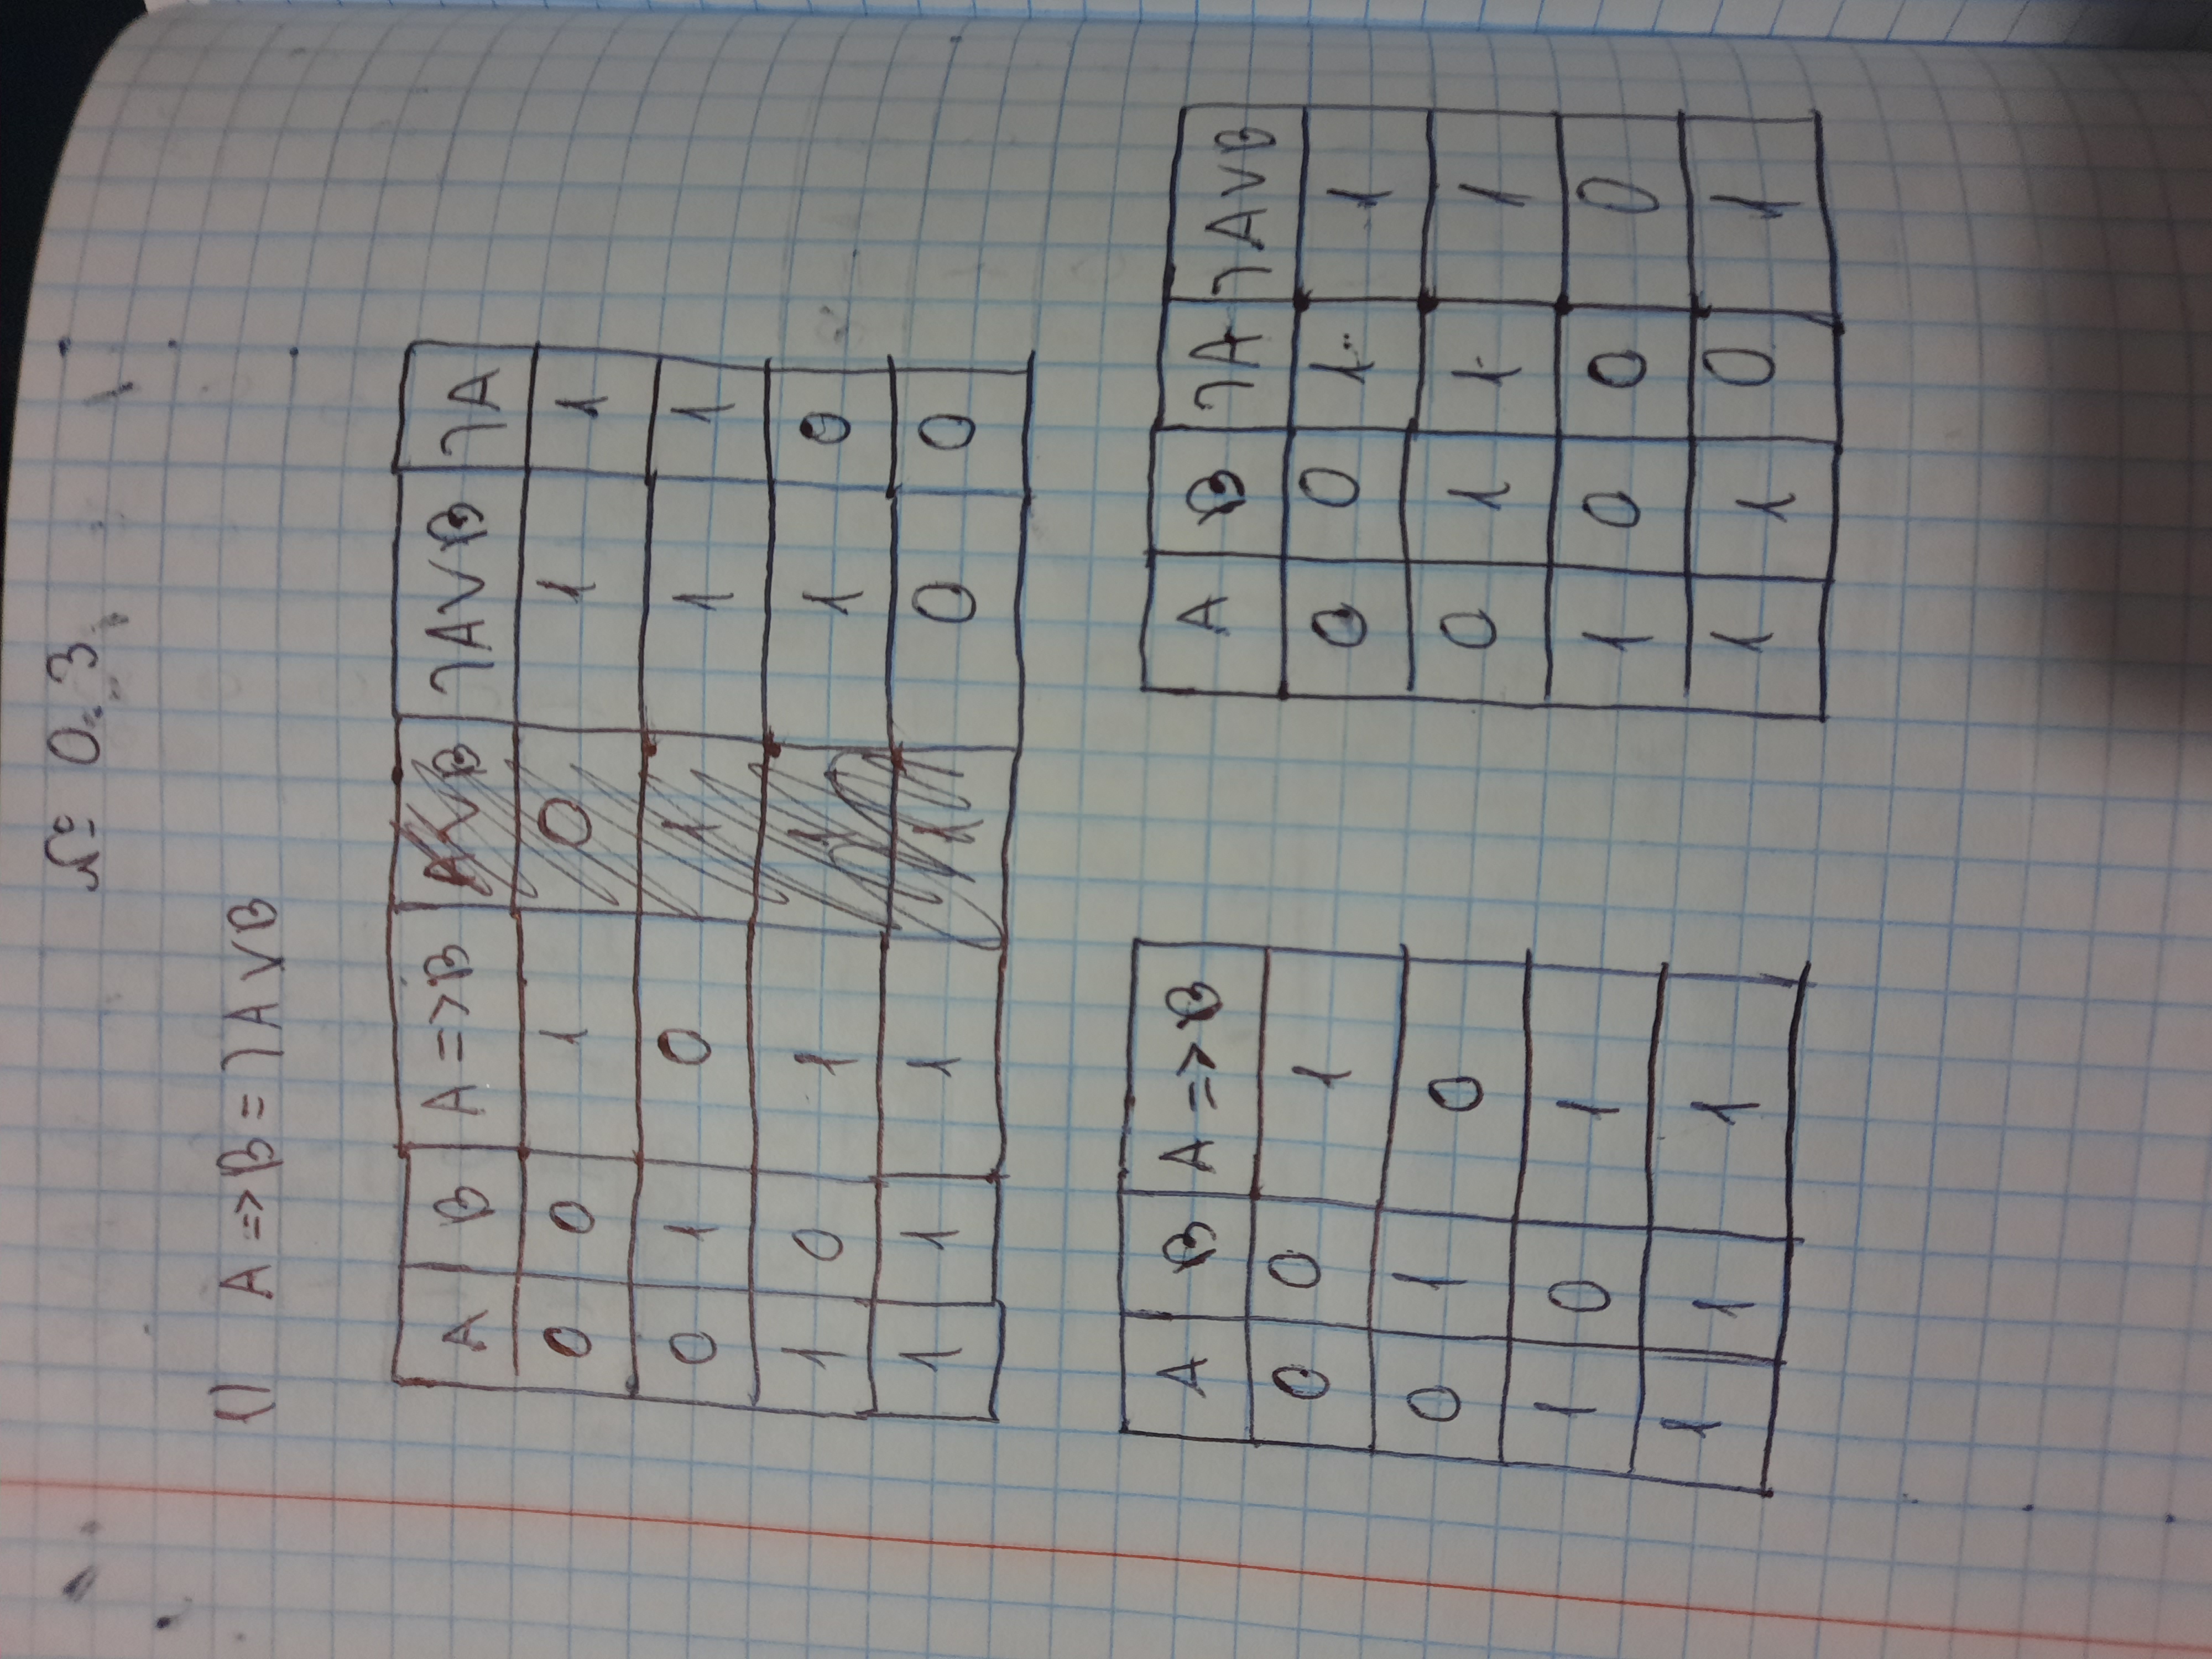 № 0.3
1) A => B = ⅂A V B
A B A => B A V B ⅂A V B ⅂A
0 0 1 0 1 1
0 1 0 1 1 1
1 0 1 1 1 0
1 1 1 1 0 0
A B A => B
0 0 1
0 1 0
1 0 1
1 1 1
A B ⅂A ⅂A V B
0 0 1 1
0 1 1 1
1 0 0 0
1 1 0 1